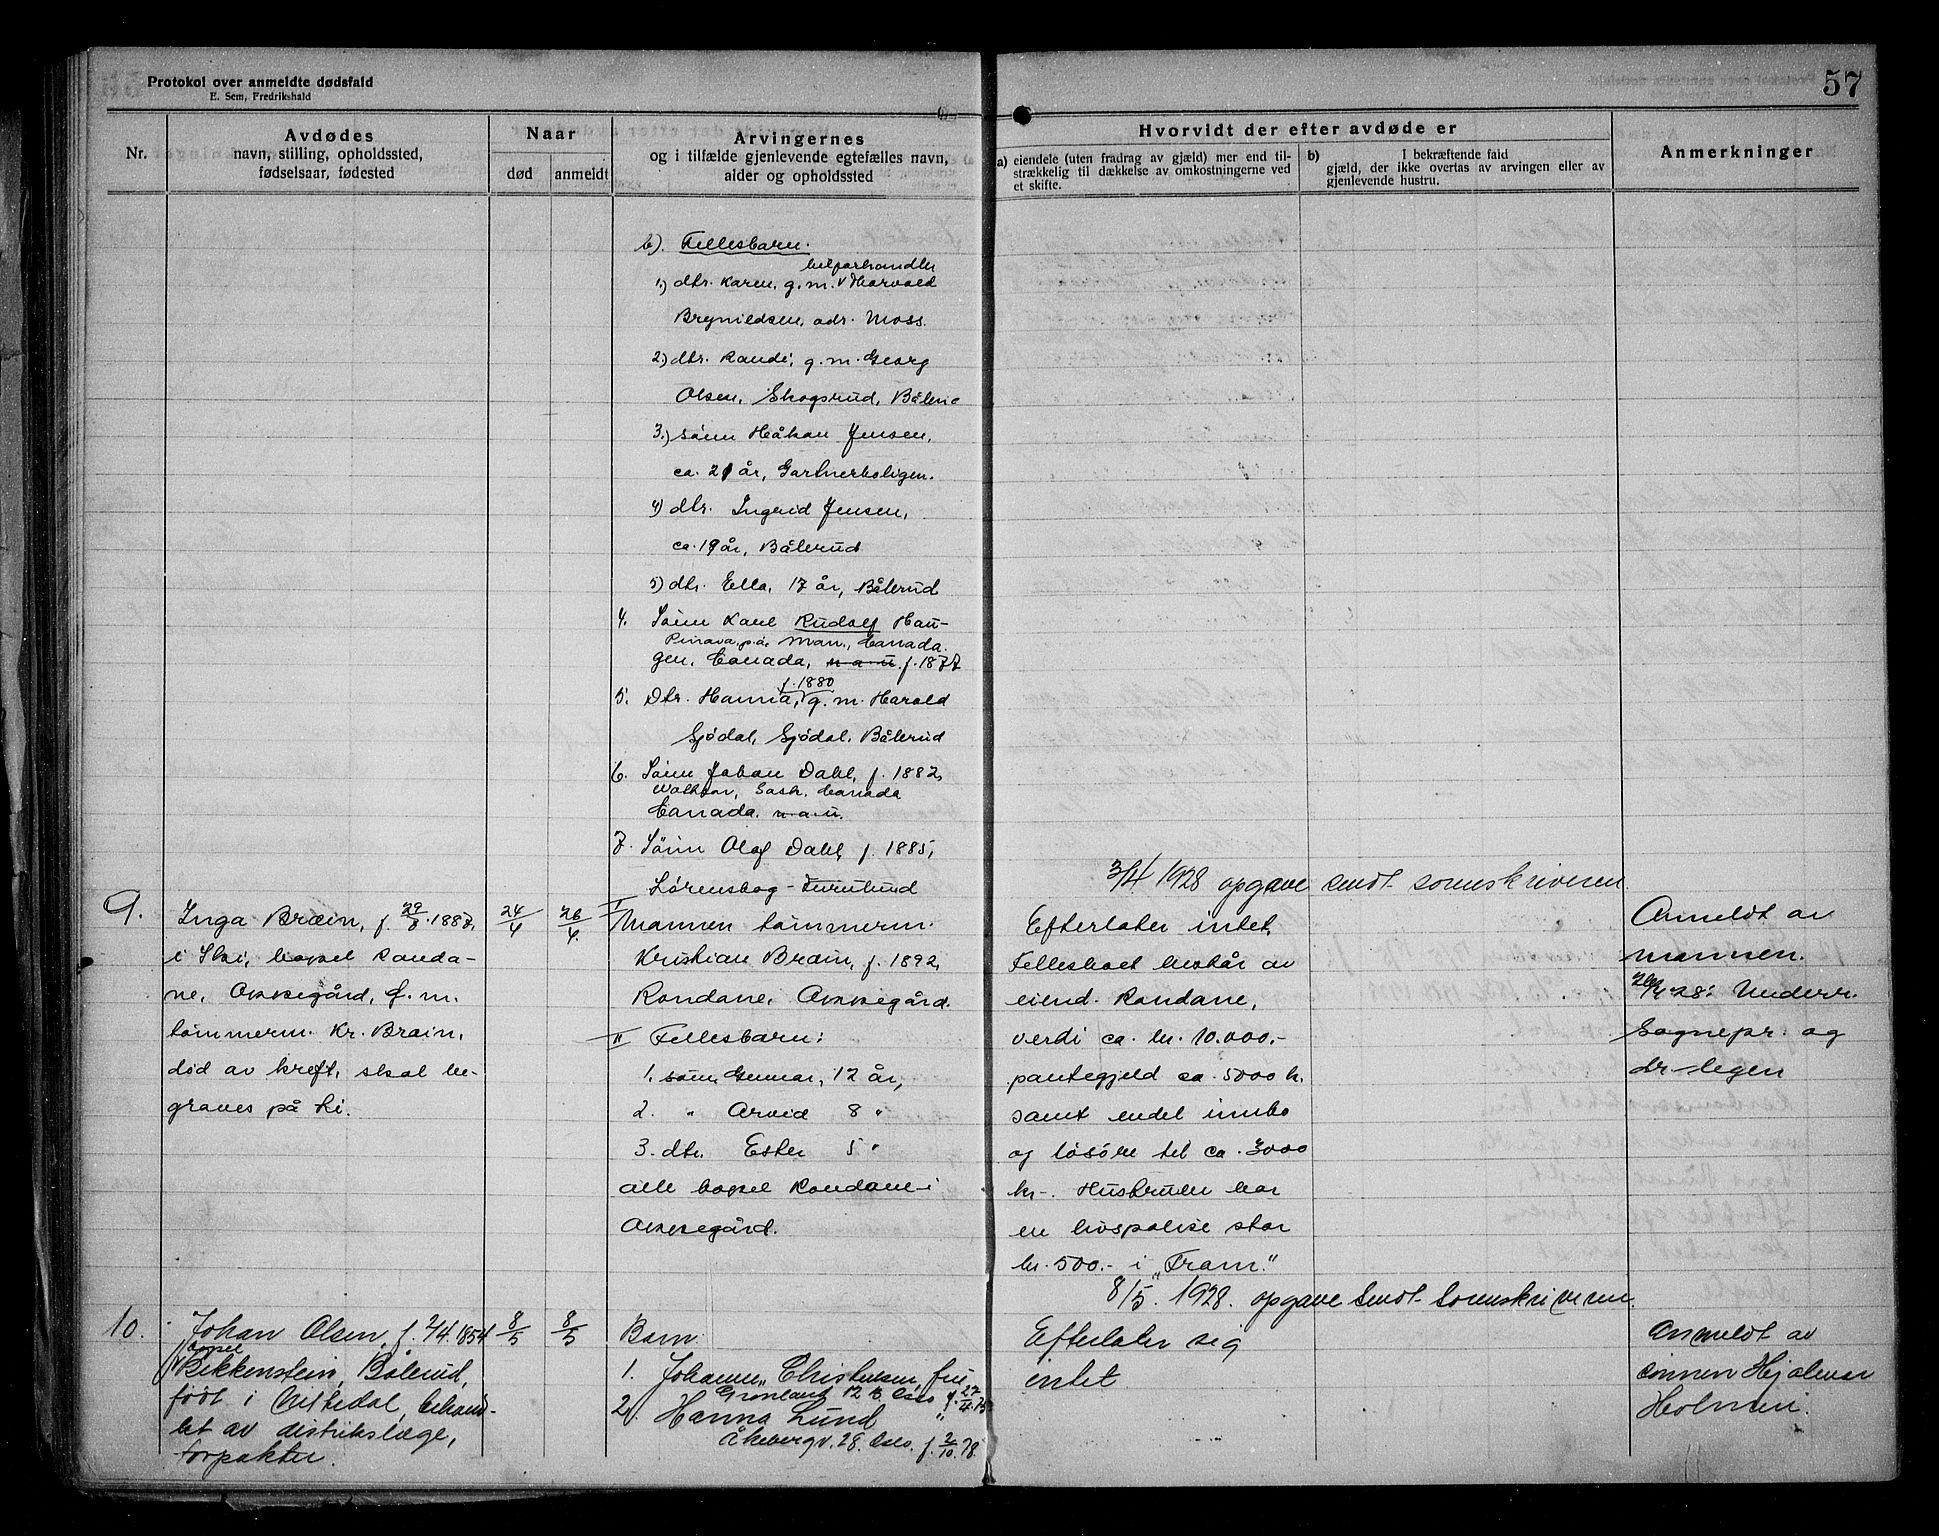 Protokol over anmeldte dødsfald
E. Sem, Fredrikshald
57
Nr.
Avdødes
navn, stilling, opholdssted,
fødselsaar, fødested
Naar
død
anmeldt
Arvingernes
og i tilfælde gjenlevende egtefælles navn,
alder og opholdssted
Hvorvidt der efter avdøde er
a) eiendele (uten fradrag av gjæld) mer end til-
strækkelig til dækkelse av omkostningerne ved
et skifte.
b) I bekræftende fald
gjæld, der ikke overtas av arvingen eller av
gjenlevende hustru.
Anmerkninger
b). Fellesbarn.
1) dtr. Karen, g. m. Harvald
Brynildsen, adr. Moss.
2) dtr. Randi, g. m. Georg
Olsen, Skogsrud, Bålerud
3.) sönn Håkan Jensen,
ca. 21 år, Gartnerboligen.
4) dtr. Ingrid Jensen,
ca. 19 år, Bålerud
5) dtr. Ella, 17 år, Bålerud
4. Sönn Karl Rudolf Hau-
Pinava, p.å., Man., Canada.
gen, Canada, n a u. f. 1877
f. 1880
5. Dtr. Hanna, g. m. Harald
Sjödal, Sjödal, Bålerud
6. Sönn Johan Dahl, f. 1882,
Sask. Canada
Canada. n a u.
7. Sönn Olaf Dahl, f. 1885,
Lørenskog - Furulund
3/4 1928 opgave sendt sorenskriveren.
9.
Inga Bræin, f. 29/7 1887,
i Ski, bopel Ronda-
ne, Oppegård, g. m.
tömmerm. Kr. Bræin,
död av kreft, skal be-
graves på Ski.
24/4
26/4.
I
Mannen tömmerm.
Kristian Bræin, f. 1892,
Rondane, Oppegård.
II Fellesbarn:
1. sönn, Gunnar, 12 år,
2. " Arvid 8 "
3. dtr. Ester 5 "
alle bopel Rondane i
Oppegård.
Efterlater intet.
Fellesboet består av
eiend. Rondane,
verdi ca. kr. 10.000.-
pantegjeld ca. 5000 k.
samt endel innbo
og lösöre til ca. 3000
kr-. Hustruen har
en livspolise stor
kr. 500.- i "Fram."
Anmeldt av
mannen.
26/4 28: Underr.
Sognepr. og
dr. legen
8/5. 1928. opgave sendt sorenskriveren.
10.
Johan Olsen, f. 2/4 1854
bopel
Bekkenstein, Bålerud,
født i Nittedal, behand-
let av distriktslæge,
forpakter.
8/5
8/5
Barn:
1. Johanne Christensen, frue
Grønland 12 b Oslo f. 27/4.75
2. Hanna Lund "
Åkebergv. 28. Oslo. f. 2/10.78.
Efterlater sig
intet
Anmeldt av
sönnen Hjalmar
Holmen.